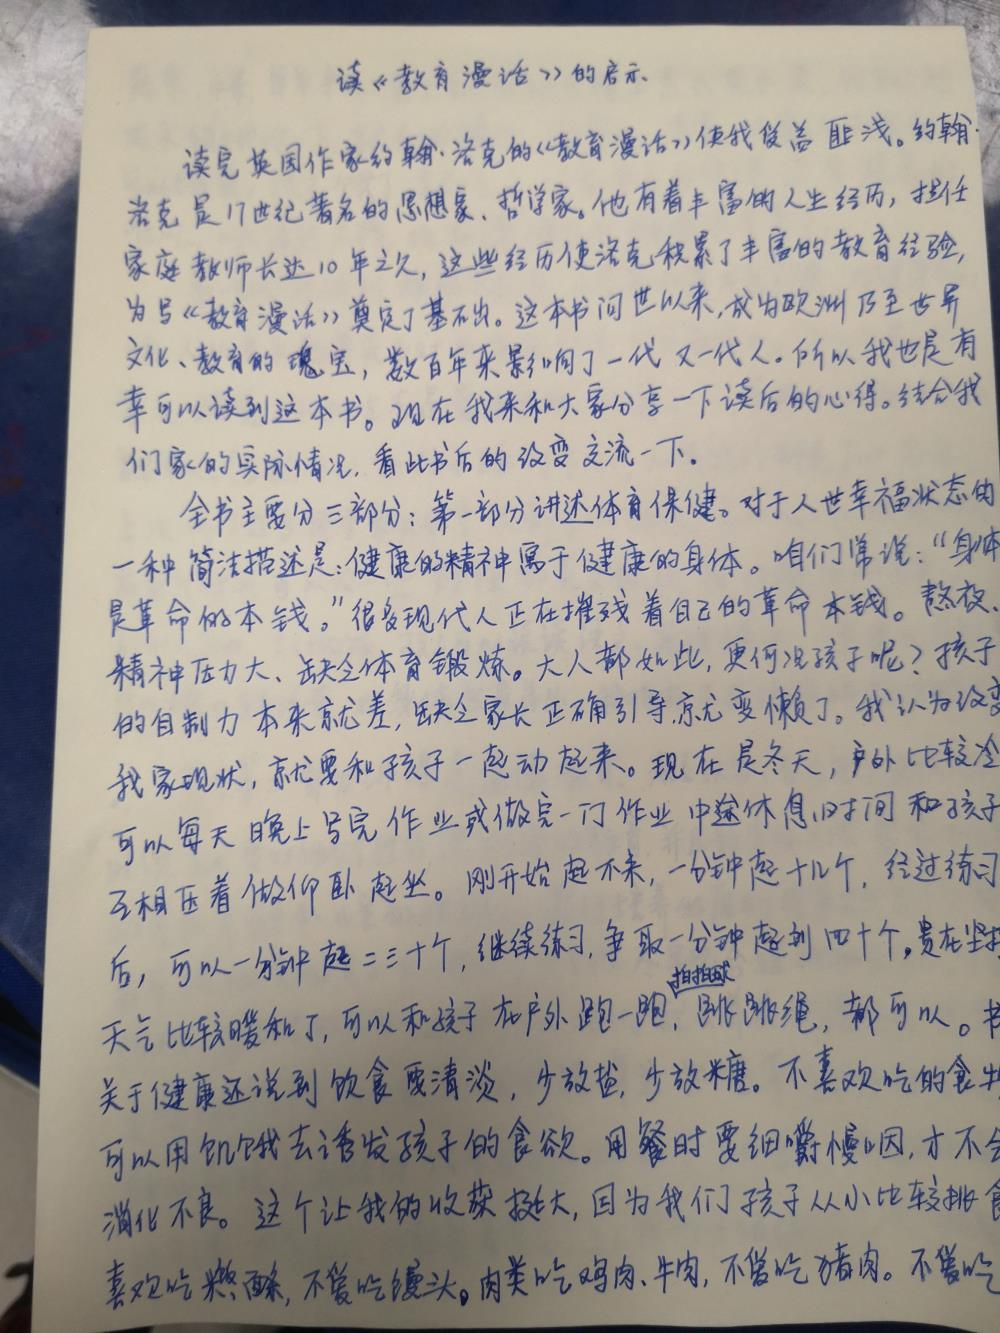 读《教育漫话》的启示
读完英国作家约翰·洛克的《教育漫话》使我受益匪浅。约翰·
洛克是17世纪著名的思想家、哲学家。他有着丰富的人生经历，担任
家庭教师长达10年之久，这些经历使洛克积累了丰富的教育经验，
为写《教育漫话》奠定了基础。这本书问世以来，成为欧洲乃至世界
文化、教育的瑰宝，数百年来影响了一代又一代人。所以我也是有
幸可以读到这本书。现在我来和大家分享一下读后的心得。结合我
们家的实际情况，看此书后的改变交流一下。
全书主要分三部分：第一部分讲述体育保健。对于人世幸福状态的
一种简洁描述是：健康的精神寓于健康的身体。咱们常说：“身体
是革命的本钱。”很多现代人正在摧残着自己的革命本钱。熬夜、
精神压力大、缺乏体育锻炼。大人都如此，更何况孩子呢？孩子
的自制力本来就差，缺乏家长正确引导，就变懒了。我认为改变
我家现状，就要和孩子一起动起来。现在是冬天，户外比较冷
可以每天晚上写完作业或做完一门作业中途休息时间和孩子
互相压着做仰卧起坐。刚开始起不来，一分钟起十几个，经过练习
后，可以一分钟起二三十个，继续练习，争取一分钟起到四十个。贵在坚持
天气比较暖和了，可以和孩子在户外跑一跑，拍拍球，跳跳绳，都可以。书
关于健康还说到饮食要清淡，少放盐，少放糖。不喜欢吃的食物
可以用饥饿我去诱发孩子的食欲。用餐时要细嚼慢咽，才不会
消化不良。这个让我的收获挺大，因为我们孩子从小比较挑食
喜欢吃米，不爱吃馒头。肉类吃鸡肉、牛肉，不爱吃猪肉。不爱吃